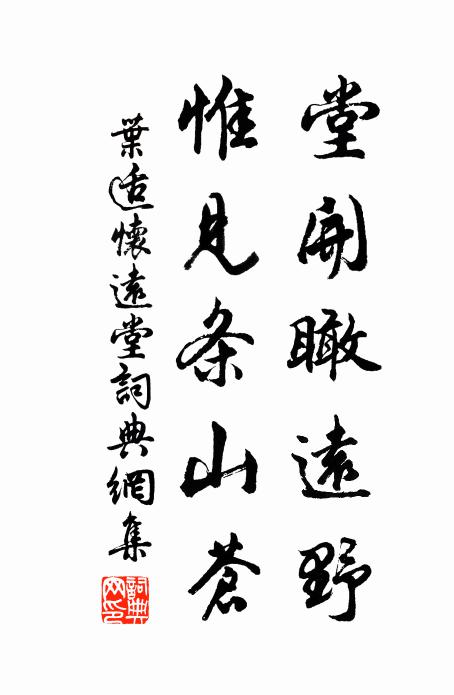 堂開瞰遠野
惟見条山蒼
葉适懷遠堂詞典網集
詞典網印